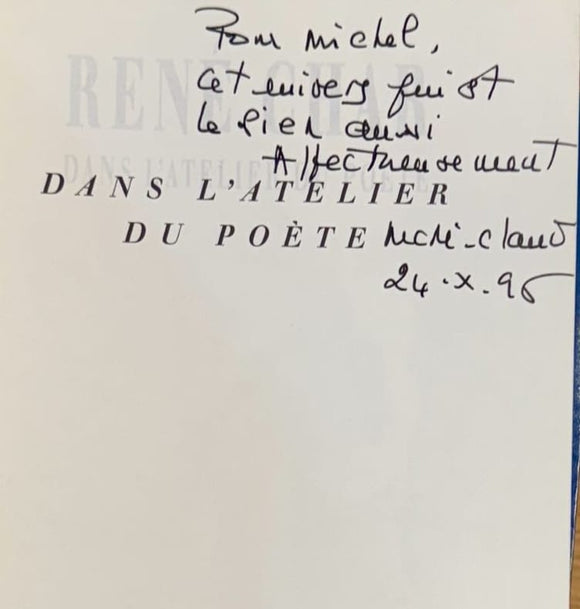 Pour Michel,
cet univers qui est
le sien aussi
Affectueusement
DANS L'ATELIER
DU POÈTE Marie-Claude
24.X.96
RENÉ CHAR
DANS L'ATELIER DU POÈTE